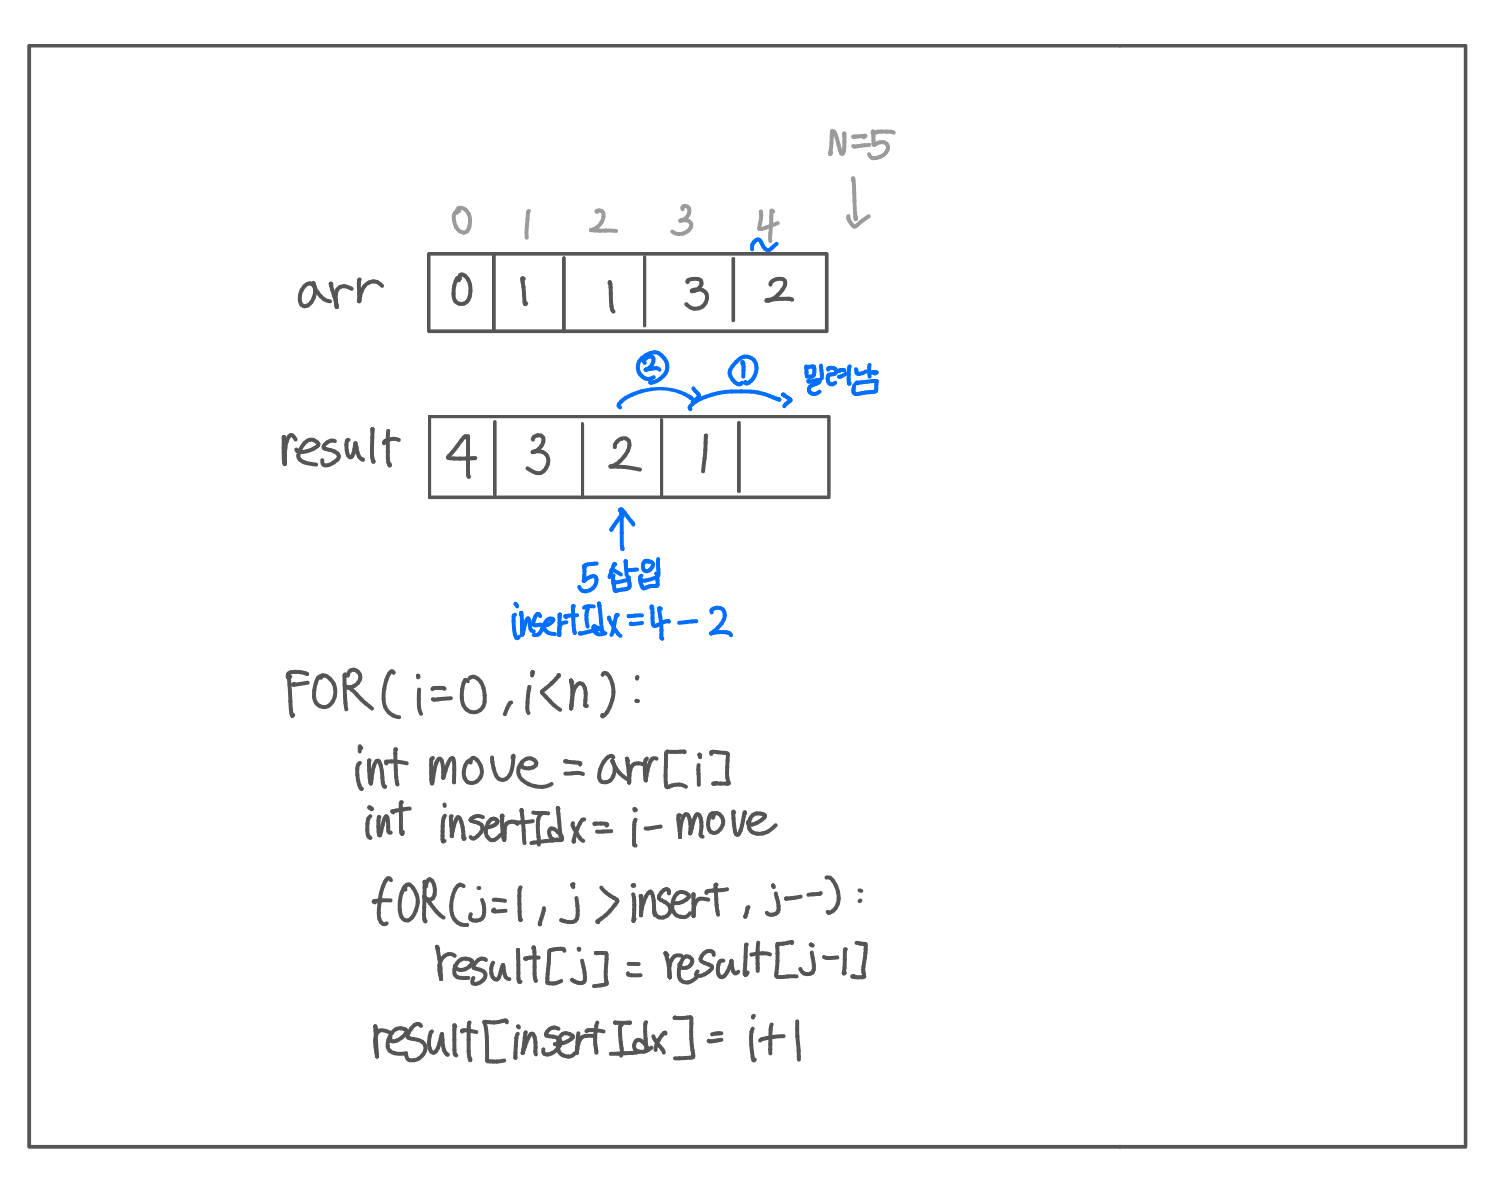 N=5
0 1 2 3 4
arr 0 1 1 3 2
② ① 밀려남
result 4 3 2 1
5 삽입
insertIdx=4-2
FOR(i=0, i<n):
int move=arr[i]
int insertIdx=i-move
fOR(j=1, j>insert, j--):
result[j]=result[j-1]
result[insertIdx]=i+1